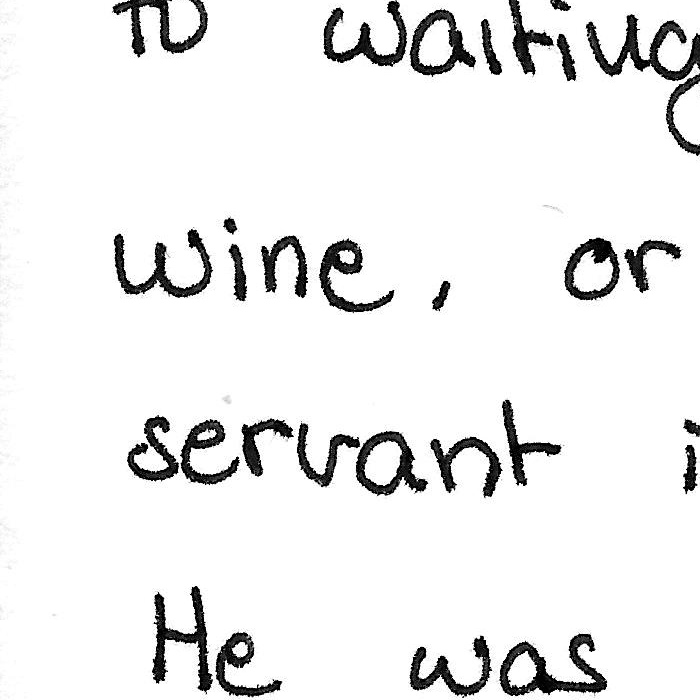 to waiting
wine, or
servant i
He was